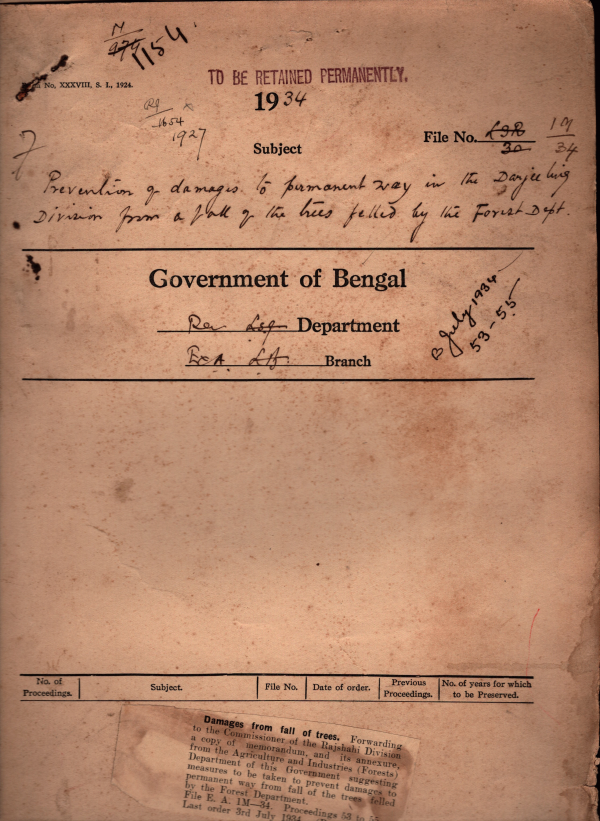 1154
No. XXXVIII, S. I., 1924.
TO BE RETAINED PERMANENTLY.
1934
1654
1927
File No. 1M/34
Subject
Prevention of damages to permanent way in the Darjeeling
Division from a fall of the trees felled by the Forest Dept.
Government of Bengal
Department
Branch
B July 1934
53-55
No. of Proceedings. Subject. File No. Date of order. Previous Proceedings. No. of years for which to be Preserved.
Damages from fall of trees. Forwarding
to the Commissioner of the Rajshahi Division
a copy of memorandum, and its annexure,
from the Agriculture and Industries (Forests)
Department of this Government suggesting
measures to be taken to prevent damages to
permanent way from fall of the trees felled
by the Forest Department.
File E. A. 1M—34. Proceedings 53 to 55
Last order 3rd July 1934